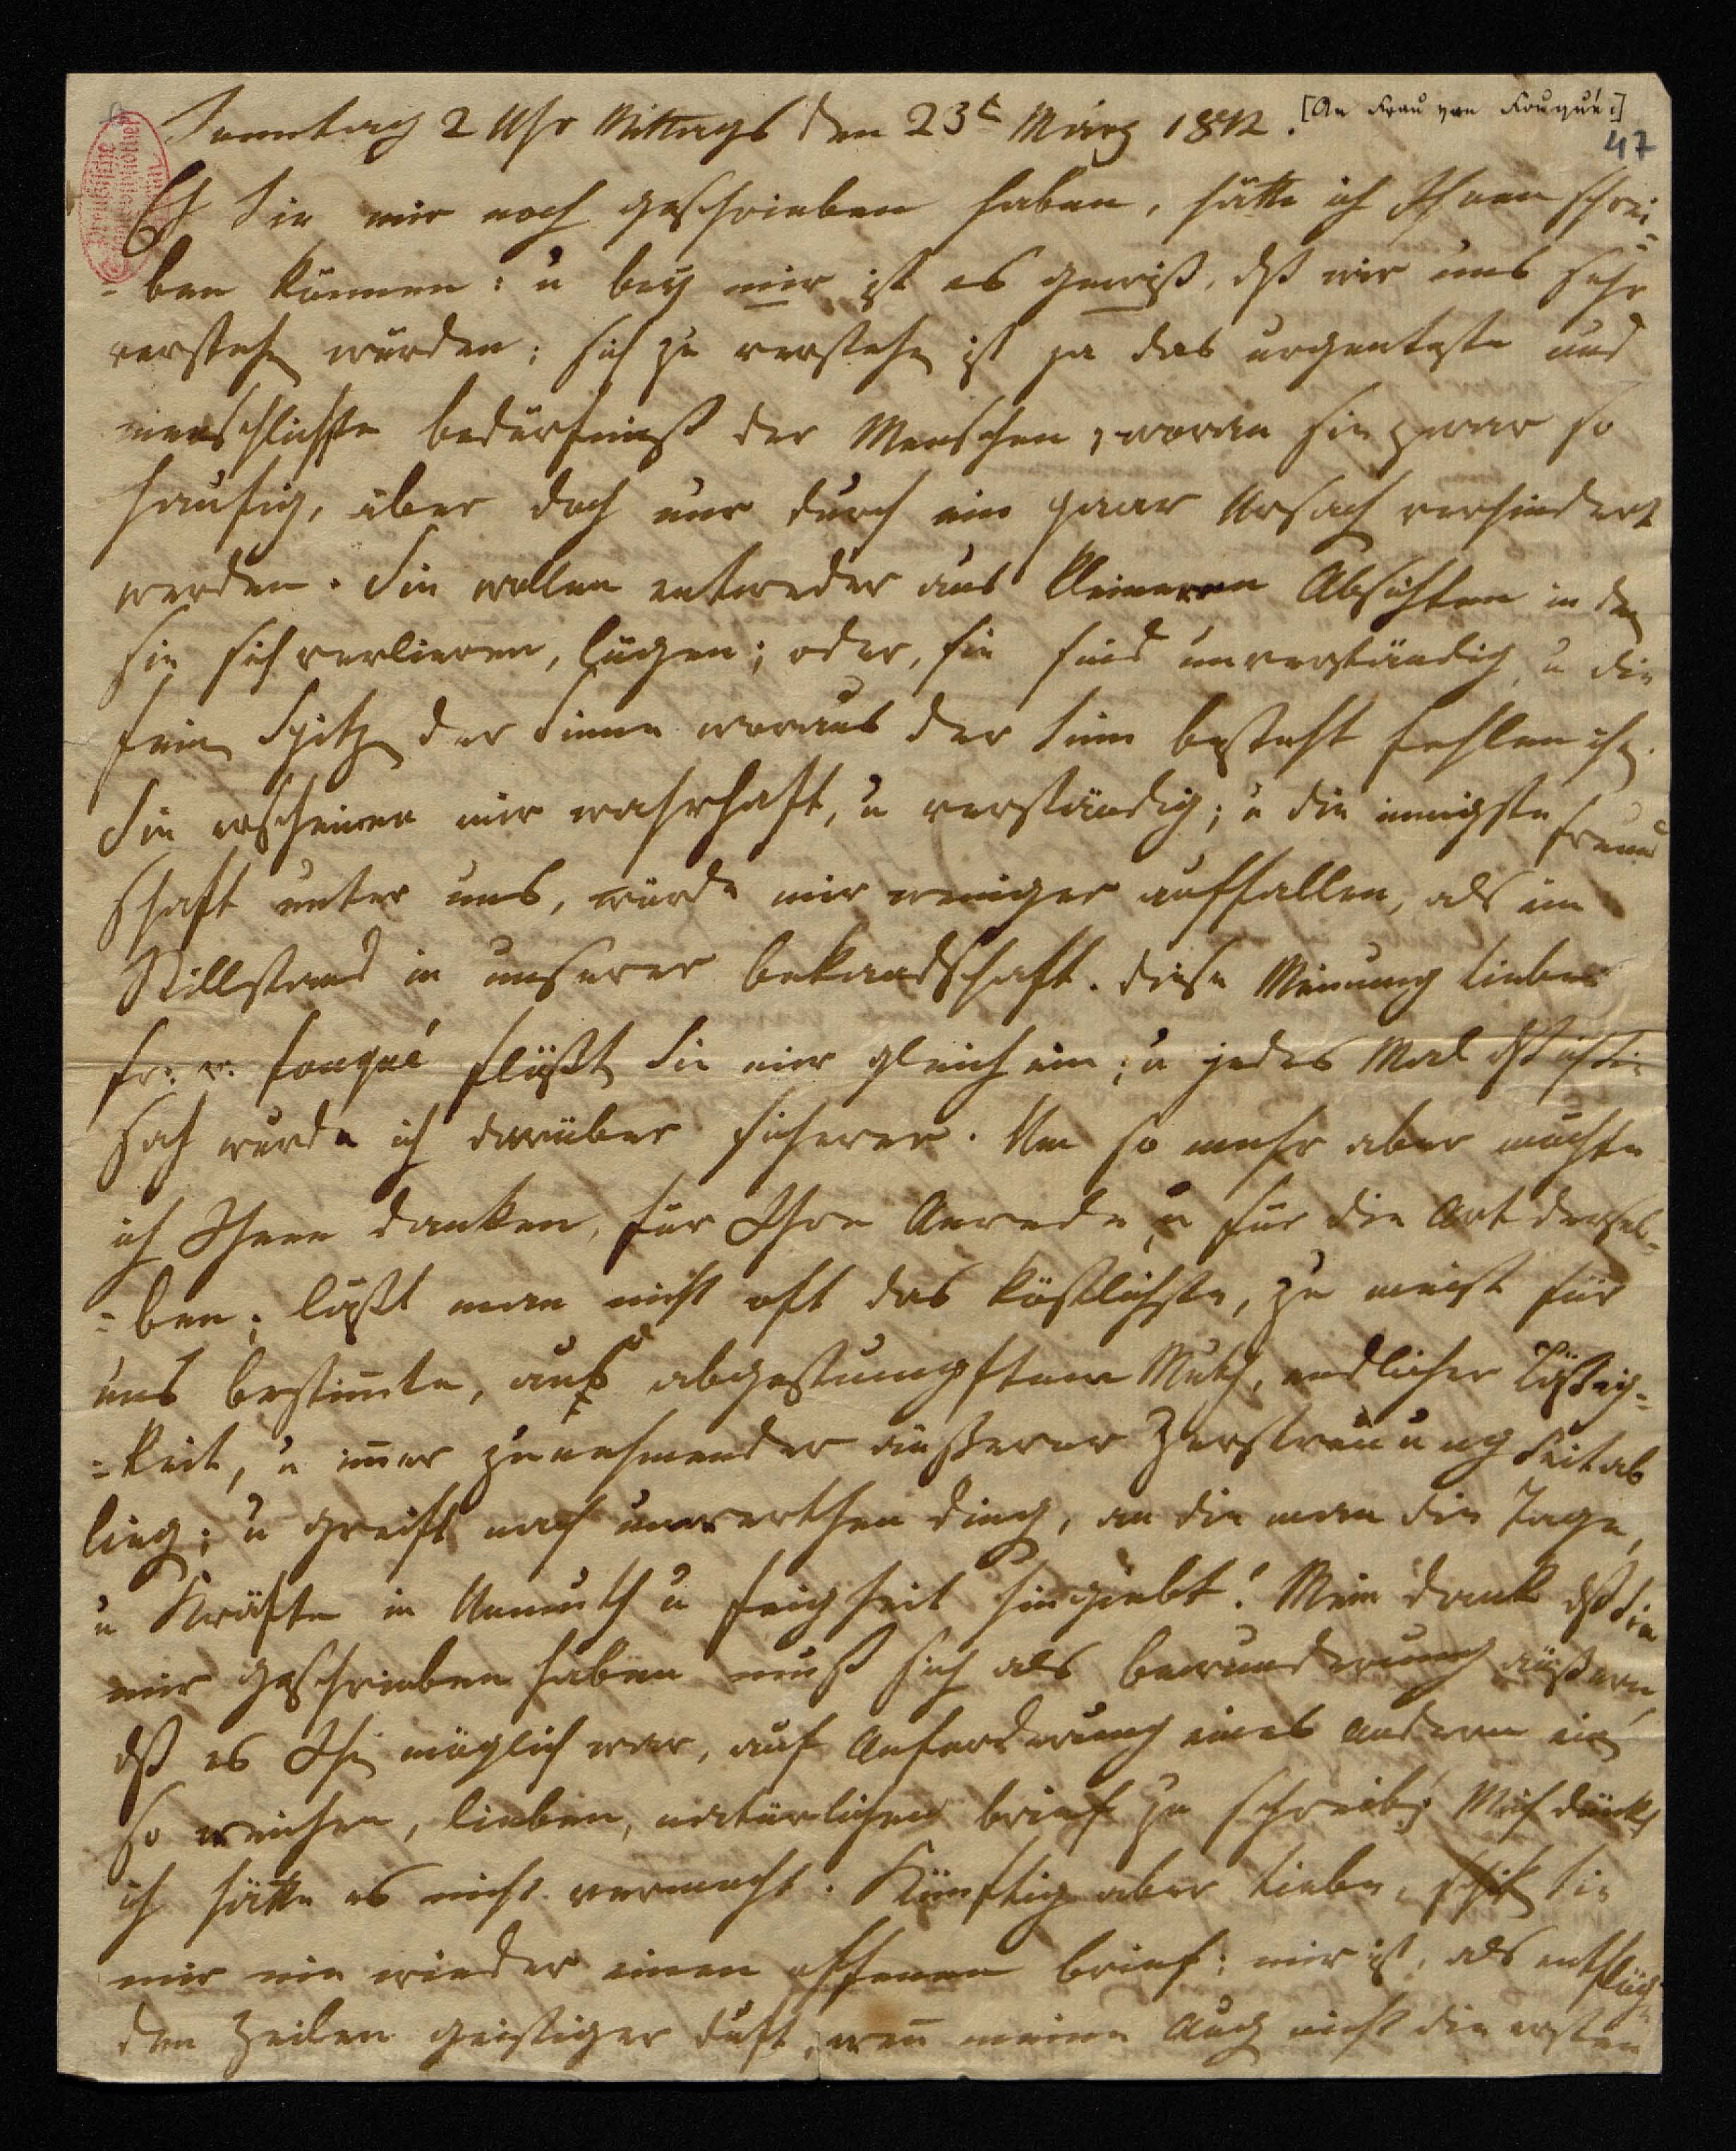 [An Frau von Fouqué:]
47
Sonntag 2 Uhr Mittags den 23t März 1812.
Eh Sie mir noch geschrieben haben, hätte ich Ihnen schrei-
-ben können: u bey mir ist es gewiß, dß wir uns sehr
verstehen würden; sich zu verstehen ist ja das urgenteste und
menschlichste bedürfniß der Menschen, woran sie zwar so
häufig, aber doch nur durch ein paar Ursach verhindert
werden. Sie wollen entweder aus kleineren Absichten in den
sie sich verlieren, lügen; oder, sie sind unverständig, u die
feinen Spitzen der Sinne woraus der Sinn besteht fehlen ihnen.
Sie erscheinen mir wahrhaft, u verständig; u die innigste Freund
schaft unter uns, würde mir weniger auffallen, als ein
Stillstand in unserer bekandschaft. diese Meinung liebe
Fr: v: Fouqué flößten Sie mir gleich ein; u jedes Mal dß ich Sie
sah wurde ich darüber sicherer. Um so mehr aber muß
ich Ihnen danken, für Ihre Anrede, u für die Art dersel-
-ben; läßt man nicht oft das köstlichste, zu meist für
uns bestim̄te, aus abgestumpftem Muth, endlicher Läßig-
-keit, u im̄er zunehmender äußerer Zerstreuung Seitab
liegen; u greift nach unwerthen Dingen, an die man die Tage,
u Kräfte in Unmuth u Feigheit hingiebt! Mein Dank dß Sie
mir geschrieben haben muß sich als bewunderung äußern,
dß es Ihnen möglich war, auf Anforderung eines Andern einen
so weichen, lieben, natürlichen brief zu schreiben; Mich dünkt
ich hätte es nicht vermocht. Künftig aber Liebe, schiken Sie
mir nie wieder einen offenen brief; mir ist, als entflöge
den Zeilen geistiger Duft, wen̄ meine Augen nicht die ersten